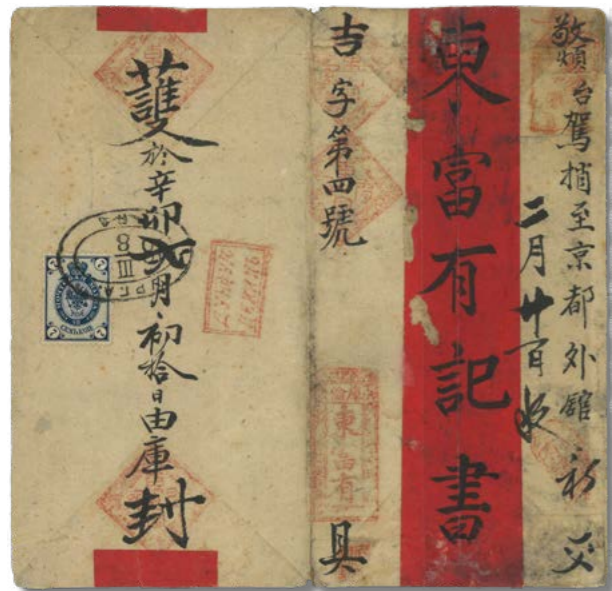 敬煩台駕捎至京都外舘
交
二月廿一日收
東富有記書
吉字第四號
具
東富有
護於辛卯弍月初拾日由庫封
8
III
7 7